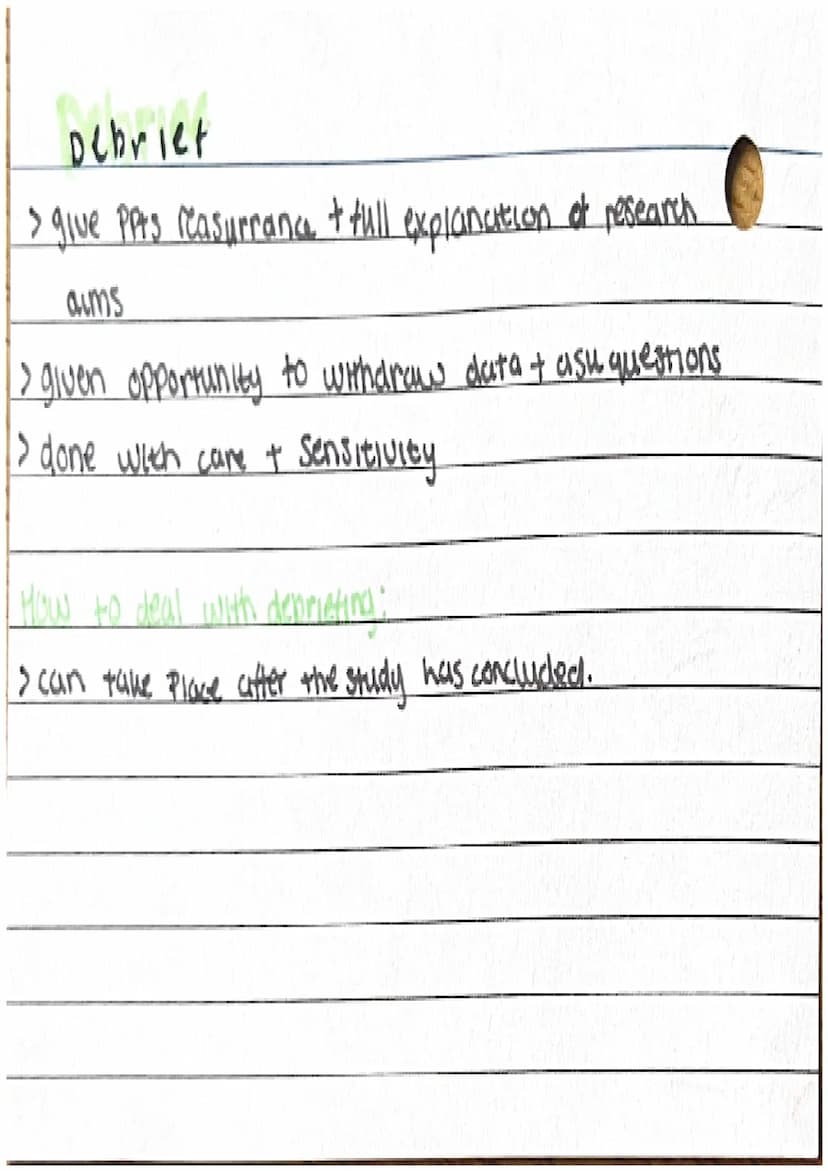 Debrief
> give PPts reasurrance + full explanation of research
aims
> given opportunity to withdraw data + ask questions
> done with care + sensitivity
How to deal with debriefing:
> can take place after the study has concluded.